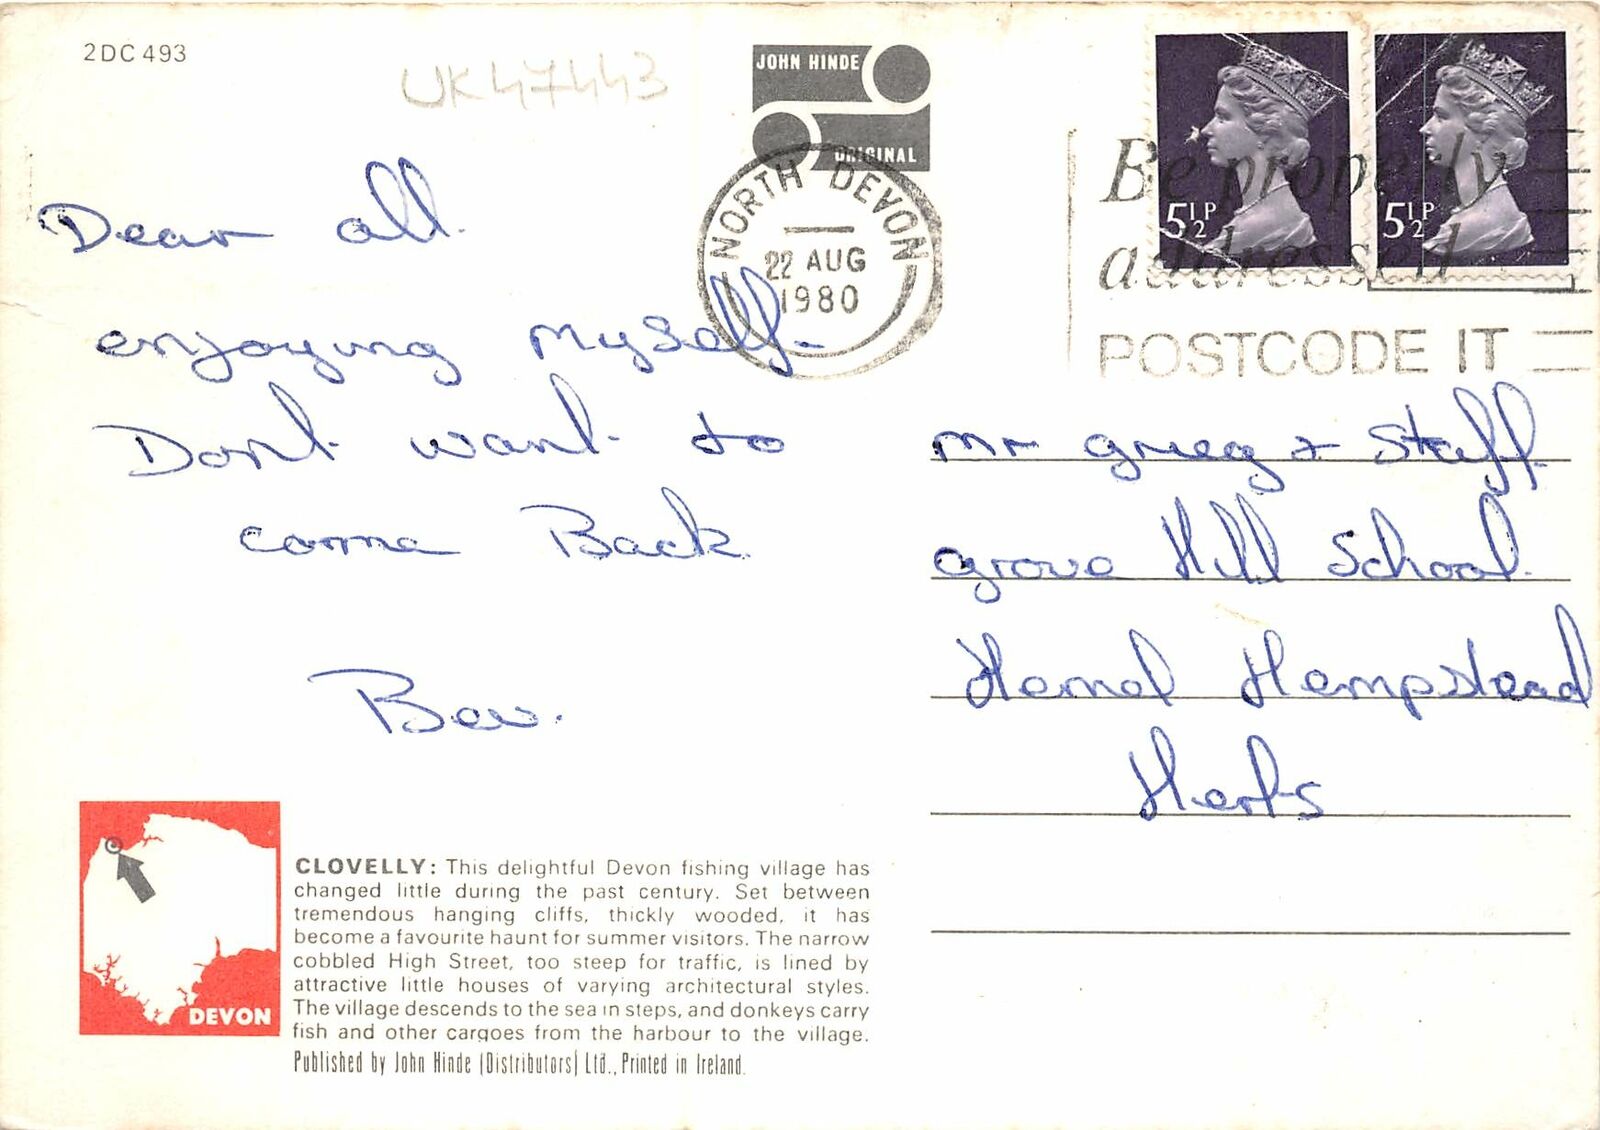 2DC 493
UK47443
JOHN HINDE
ORIGINAL
NORTH DEVON
22 AUG
1980
5½P
5½P
Be properly
addressed
POSTCODE IT
Dear all.
enjoying myself-
Dont want to
come Back.
Bev.
mr grieg & Staff.
grove Hill School.
Hemel Hempstead
Herts
DEVON
CLOVELLY: This delightful Devon fishing village has
changed little during the past century. Set between
tremendous hanging cliffs, thickly wooded, it has
become a favourite haunt for summer visitors. The narrow
cobbled High Street, too steep for traffic, is lined by
attractive little houses of varying architectural styles.
The village descends to the sea in steps, and donkeys carry
fish and other cargoes from the harbour to the village.
Published by John Hinde (Distributors) Ltd., Printed in Ireland.